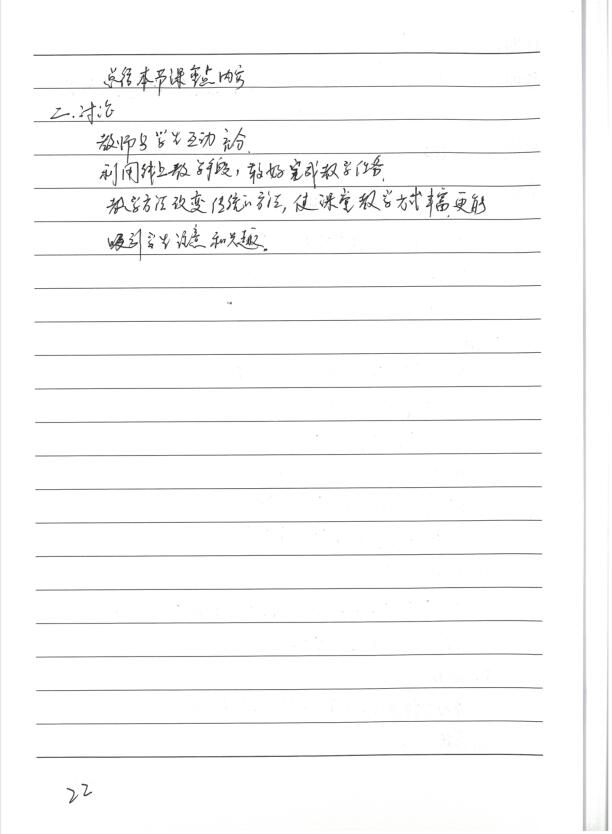 总结本节课重点内容
二.讨论
教师与学生互动充分.
利用线上教学手段,较好完成教学任务.
教学方法改变传统的方法,使课堂教学方式丰富.更能
吸引学生注意和兴趣。
22